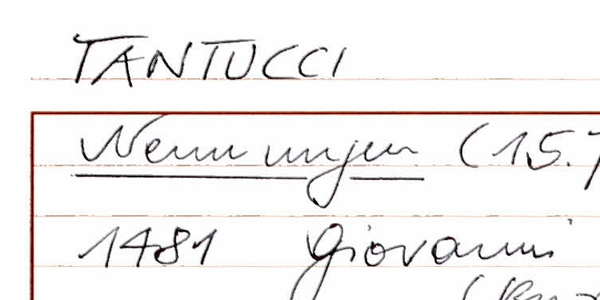 TANTUCCI
Nennungen (15.
1481 Giovanni